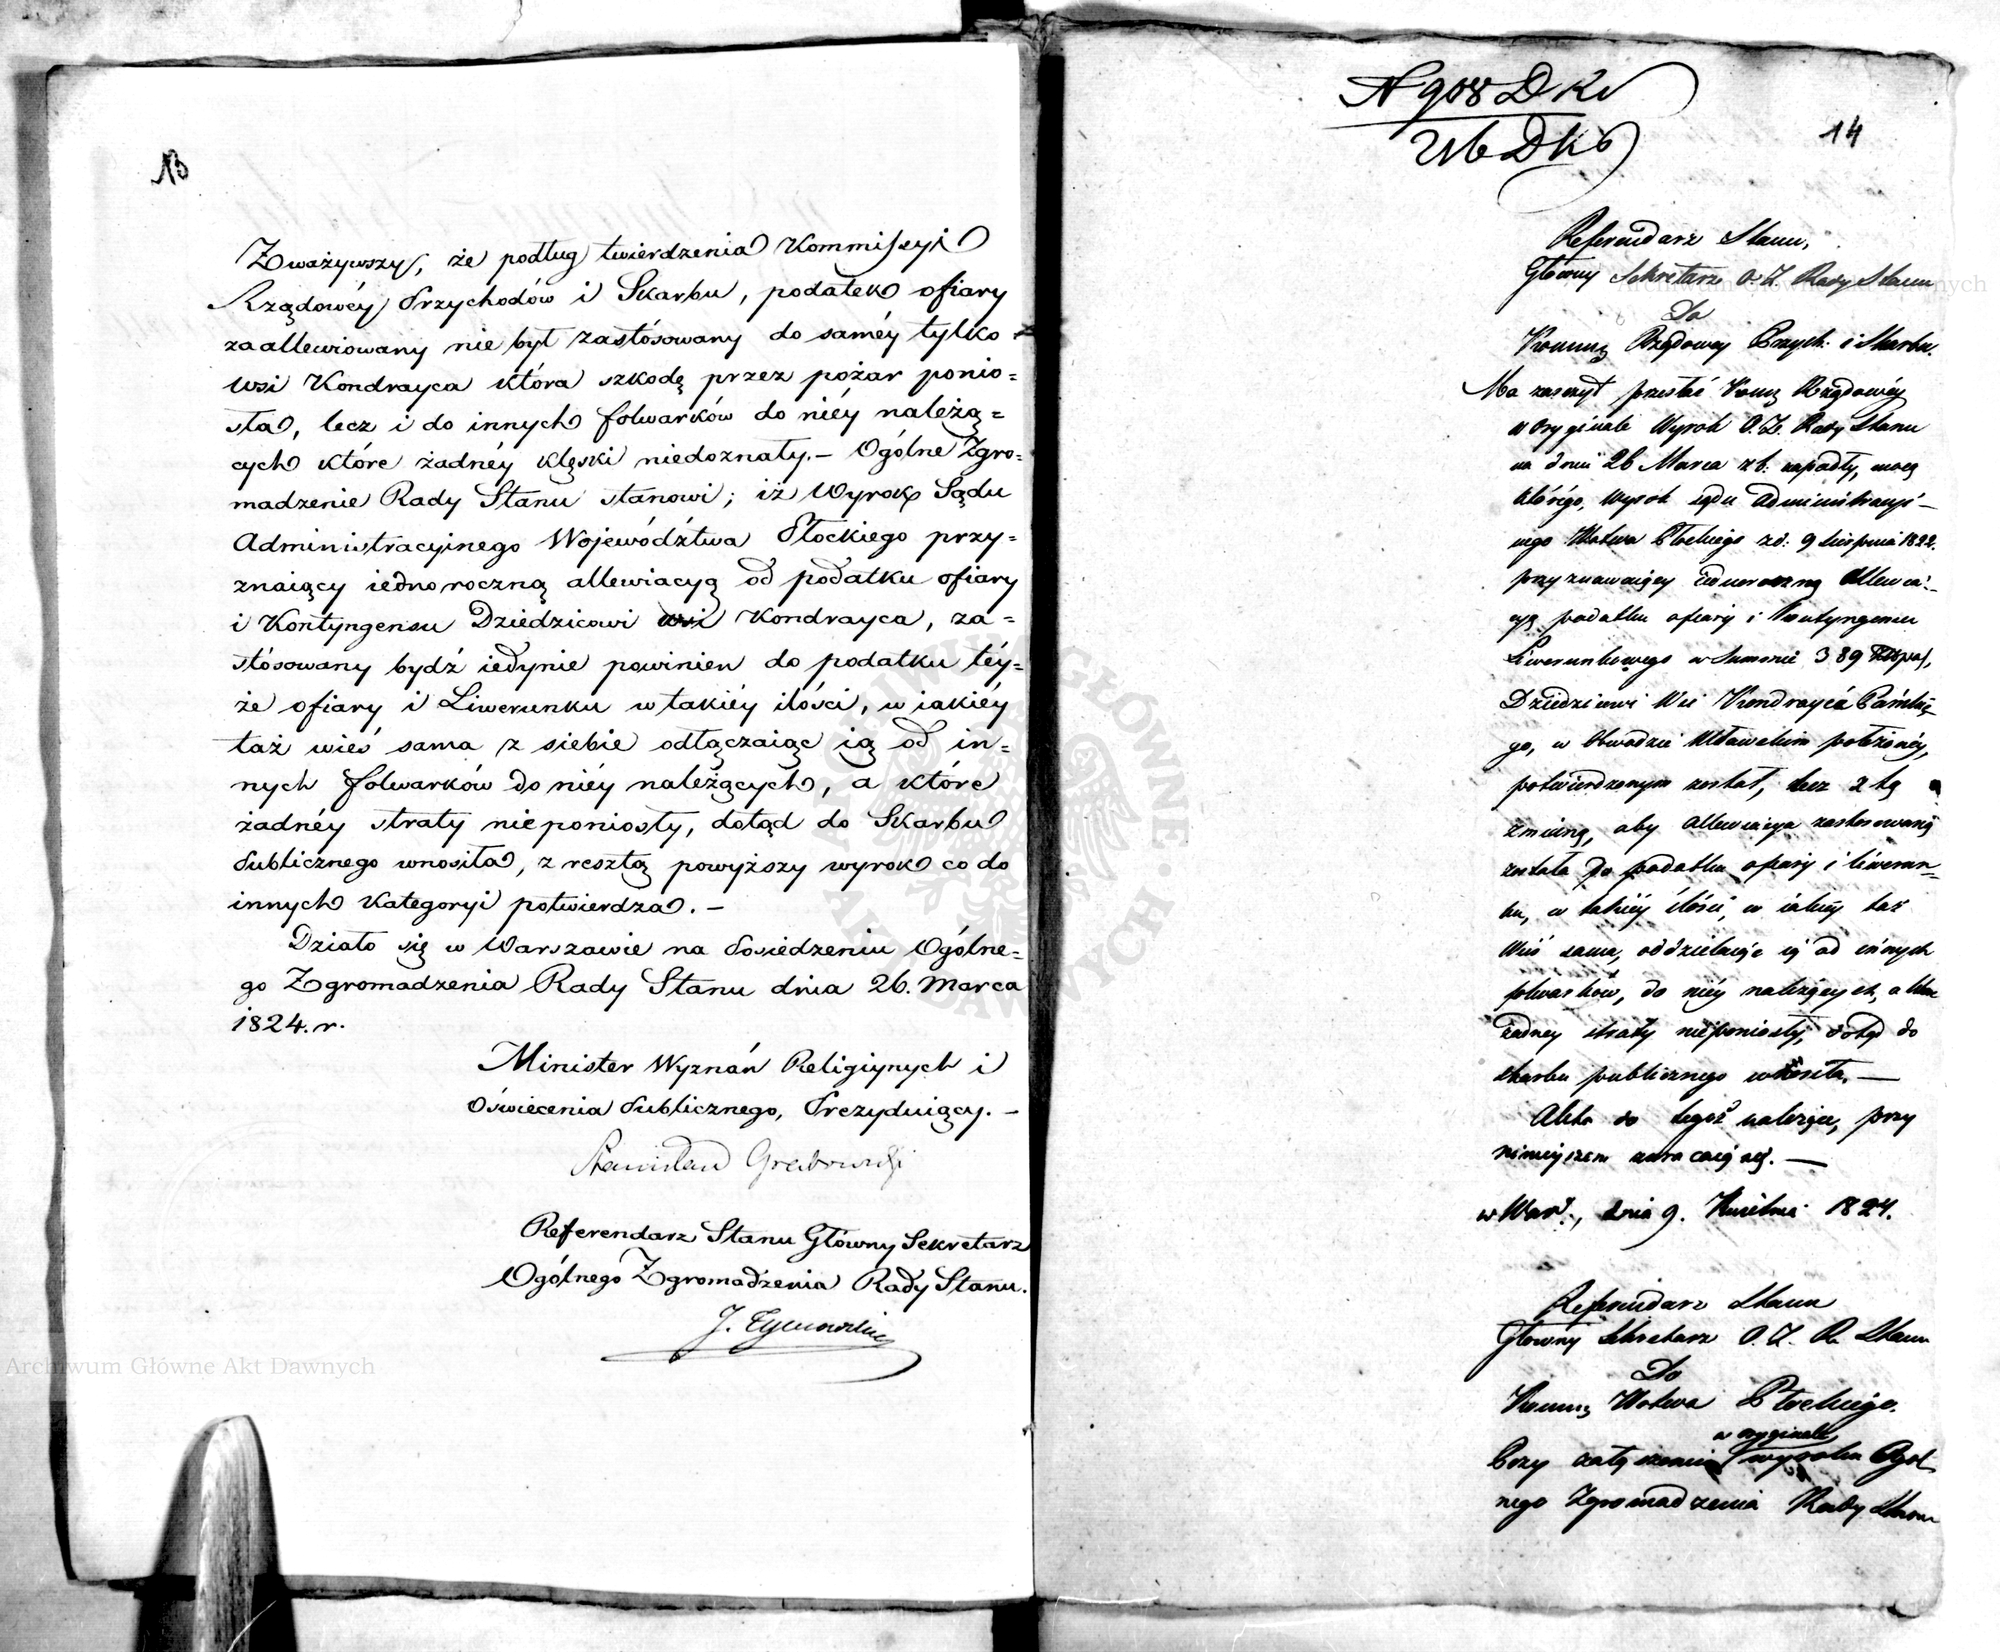 13
Zważywszy, że podług twierdzenia Kommissyi
Rządowéy Przychodów i Skarbu, podatek ofiary
zaallewiowany nie był zastósowany do saméy tylko
wsi Kondrayca która szkodę przez pożar ponio=
sła, lecz i do innych folwarków do niéy należą=
cych które żadnéy klęski niedoznały.— Ogólne Zgro=
madzenie Rady Stanu stanowi; iż Wyrok Sądu
Administracyinego Województwa Płockiego przy=
znaiący iednoroczną allewiacyą od podatku ofiary
i Kontyngensu Dziedzicowi wsi Kondrayca, za=
stósowany bydź iedynie powinien do podatku téy=
że ofiary i Liwerunku w takiéy ilości, w iakiéy
taż wieś sama z siebie odłączaiąc ią od in=
nych folwarków do niéy należących, a które
żadnéy straty nieponiosły, dotąd do Skarbu
Publicznego wnosiła, z resztą powyższy wyrok co do
innych Kategoryi potwierdza.—
Działo się w Warszawie na Posiedzeniu Ogólne=
go Zgromadzenia Rady Stanu dnia 26. Marca
1824. r.
Minister Wyznań Religiynych i
Oświecenia Publicznego, Prezyduiący.—
Stanisław Grabowski
Referendarz Stanu Główny Sekretarz
Ogólnego Zgromadzenia Rady Stanu.
J. Tymowski
N 908 D K
14
Referendarz Stanu,
Główny Sekretarz O. Z. Rady Stanu
Do
Kommis Rządowey Przych: i Skarbu.
Ma zaszczyt przesłać Kommis Rządowéy
w oryginale Wyrok O. Z. Rady Stanu
na dniu 26 Marca r. b. zapadły, mocą
którégo, wyrok sądu administracyi—
nego Wdztwa Płockiego z d: 9 Sierpnia 1822.
przyznawaiący iednoroczną allewia—
cyą podatku ofiary i Kontyngensu
Liwerunkowego w Summie 389
Dziedzicowi Wsi Kondrayca Pańskié
go, w Obwodzie Mławskim położonéy,
potwierdzonym został, lecz z tą
zmianą, aby allewiacya zastosowaną
została do podatku ofiary i liwerun=
ku, w takiéy ilości, w iakiéy taż
Wieś sama, oddzielaiąc ią od innych
folwarków, do niéy należących, a które
żadney straty nieponiosły, dotąd do
skarbu publicznego wnosiła.—
Akta do tegoż należące, przy
ninieyszem zwracaią się.—
w War:, dnia 9. Kwietnia 1824.
Referendarz Stanu
Główny Sekretarz O. Z. R. Stanu
Do
Kommis Wdztwa Płockiego.
w oryginale
Przy załączeniu wyroku Ogól
nego Zgromadzenia Rady Stanu
Archiwum Główne Akt Dawnych
Archiwum Główne Akt Dawnych
ARCHIWUM GŁÓWNE AKT DAWNYCH